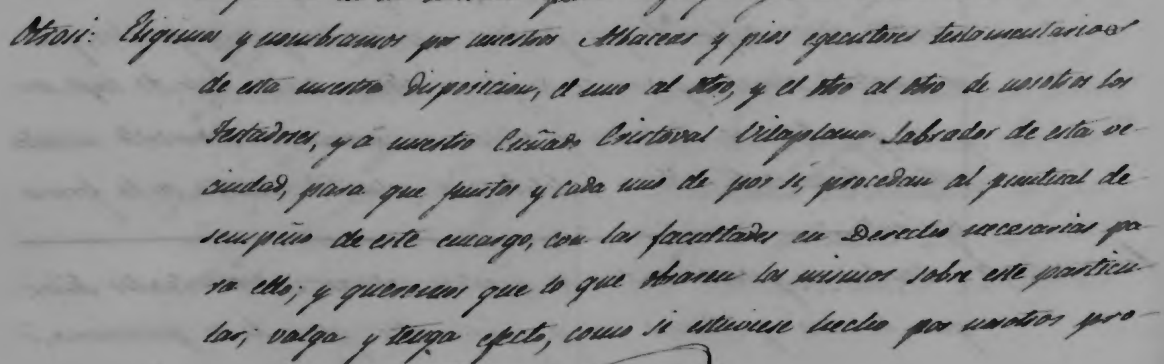 Otrosi: Eligimos y nombramos por nuestros Albaceas y pios egecutores testamentarios
de esta nuestra disposicion, el uno al otro, y el otro al otro de nosotros los
Testadores, y a nuestro Cuñado Cristoval Vilaplana Labrador de esta ve-
cindad, para que juntos y cada uno de por sí, procedan al puntual de-
sempeño de este encargo, con las facultades en Derecho necesarias pa-
ra ello; y queremos que lo que obraren los mismos sobre este particu-
lar, valga y tenga efecto, como si estuviese hecho por nosotros pro-